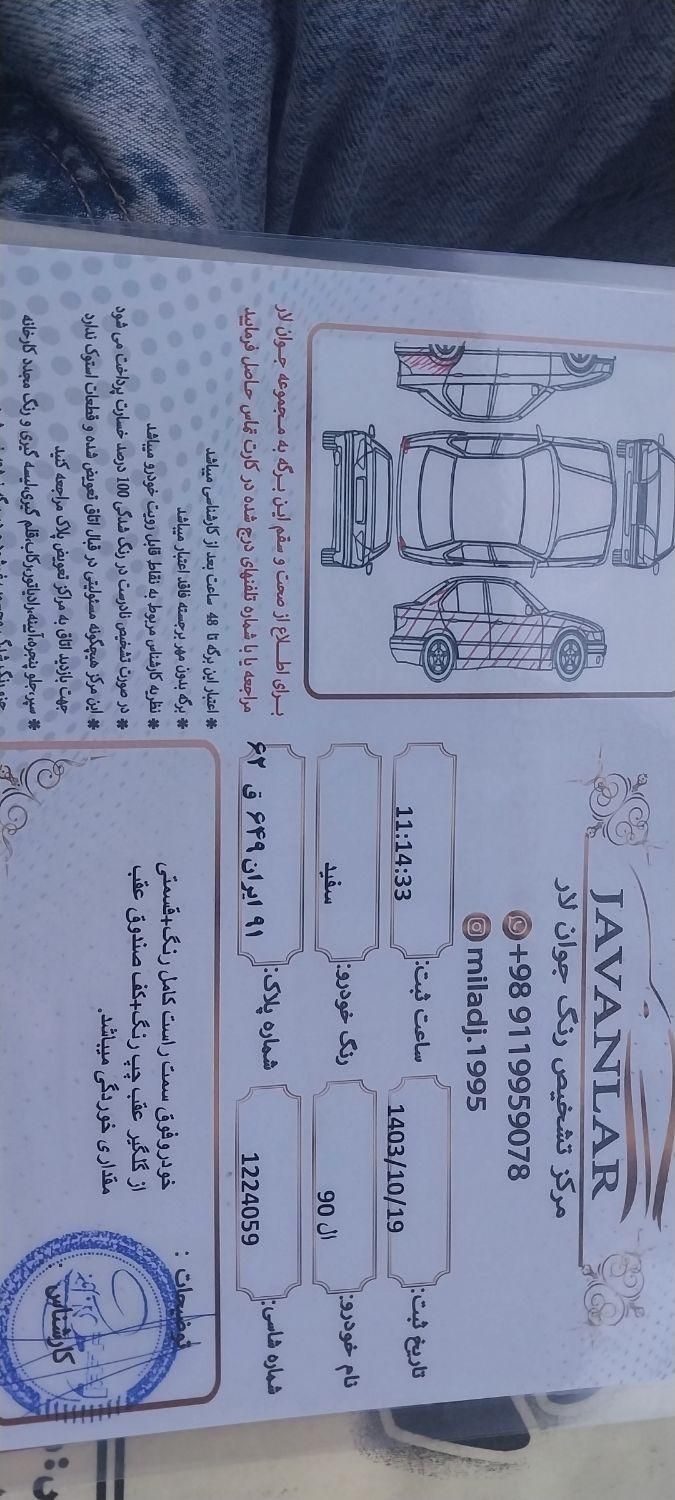 JAVANLAR
مرکز تشخیص رنگ جوان لار
+98 9119959078
miladj.1995
تاریخ ثبت: 1403/10/19
ساعت ثبت: 11:14:33
نام خودرو: ال 90
رنگ خودرو: سفید
شماره شاسی: 1224059
شماره پلاک: ۹۱ ایران ۶۴۹ ق ۶۲
برای اطلاع از صحت و سقم این برگه به مجموعه جوان لار
مراجعه یا با شماره تلفنهای درج شده در کارت تماس حاصل فرمایید
* اعتبار این برگه تا 48 ساعت بعد از کارشناسی میباشد
* برگه بدون مهر برجسته فاقد اعتبار میباشد
* نظریه کارشناس مربوط به نقاط قابل رویت خودرو میباشد
* در صورت تشخیص نادرست در رنگ شدگی 100 درصد خسارت پرداخت می شود
* این مرکز هیچگونه مسئولیتی در قبال اتاق تعویض شده و قطعات استوک ندارد
جهت بازدید اتاق به مراکز تعویض پلاک مراجعه کنید
* سپر،جلو پنجره،آیینه،رادیاتور،رکاب،قلم گیری،لیسه گیری و رنگ مجدد کارخانه
توضیحات :
خودرو فوق سمت راست کامل رنگ+قسمتی
از گلگیر عقب چپ رنگ+کف صندوق عقب
مقداری خوردگی میباشد.
کارشناس :